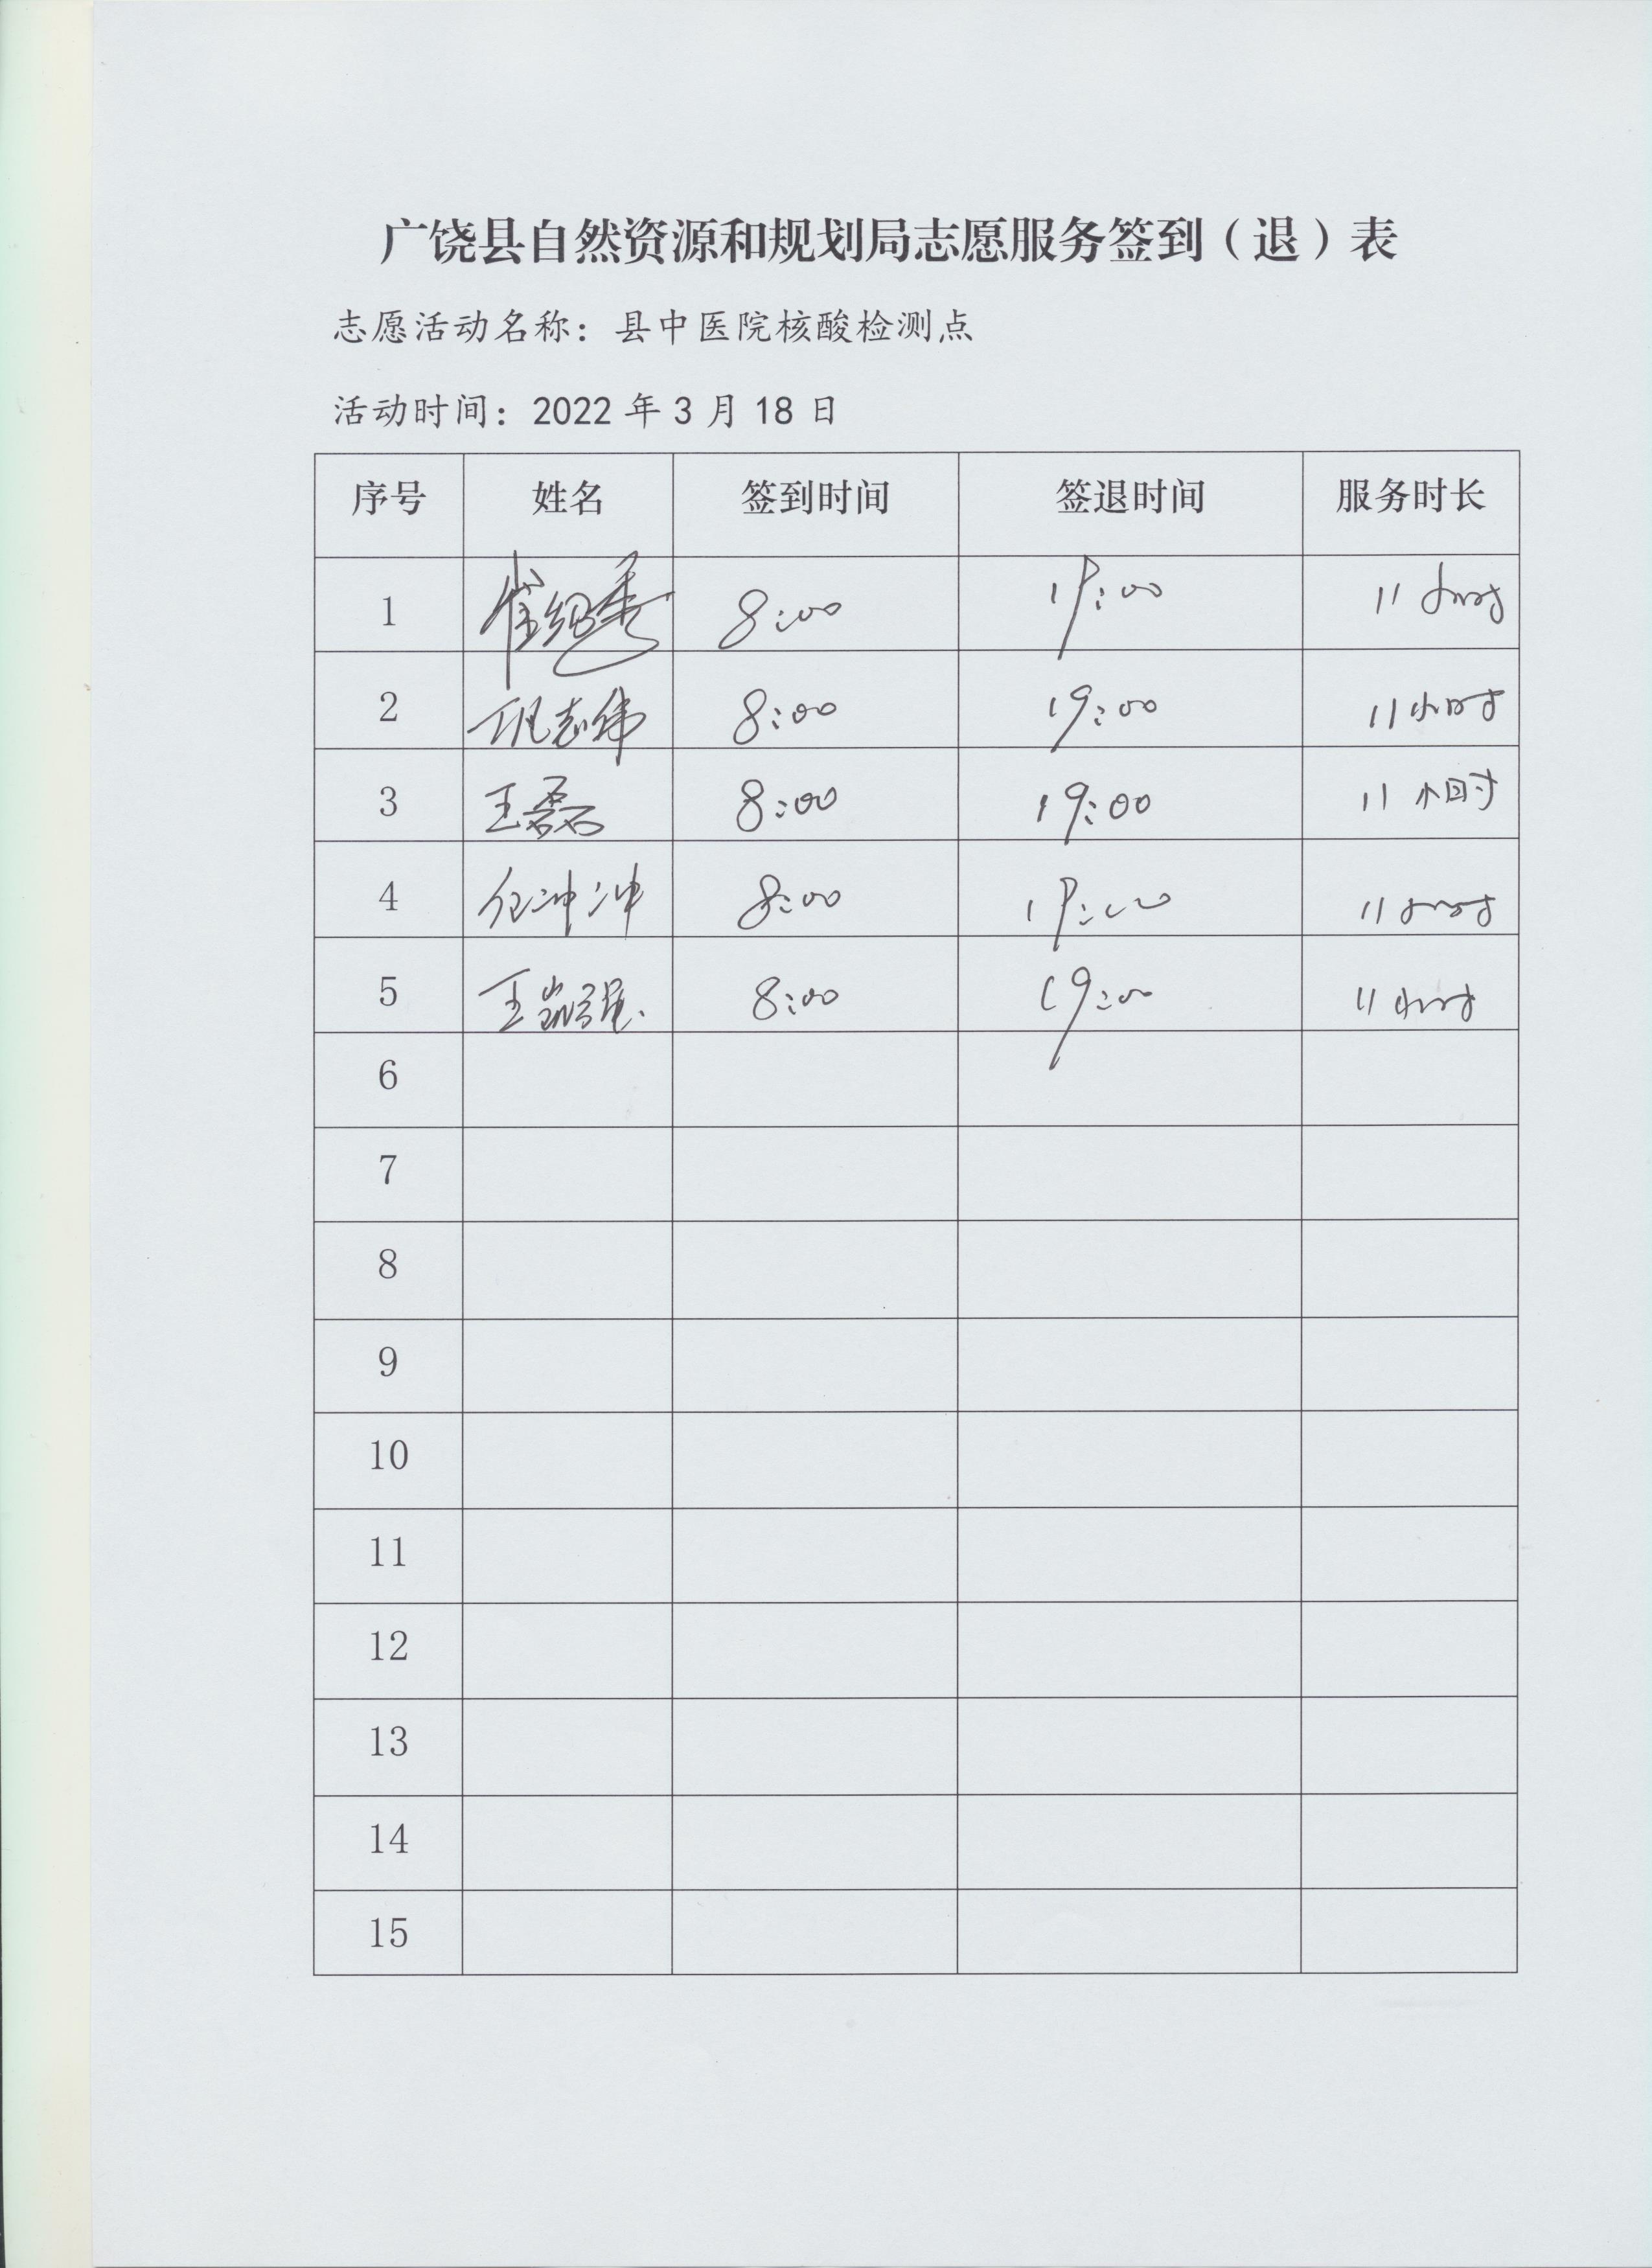 广饶县自然资源和规划局志愿服务签到（退）表
志愿活动名称：县中医院核酸检测点
活动时间：2022年3月18日
序号 姓名 签到时间 签退时间 服务时长
1 崔绍 8:00 19:00 11小时
2 志伟 8:00 19:00 11小时
3 王磊 8:00 19:00 11小时
4 任冲冲 8:00 19:00 11小时
5 王瑞强 8:00 19:00 11小时
6
7
8
9
10
11
12
13
14
15